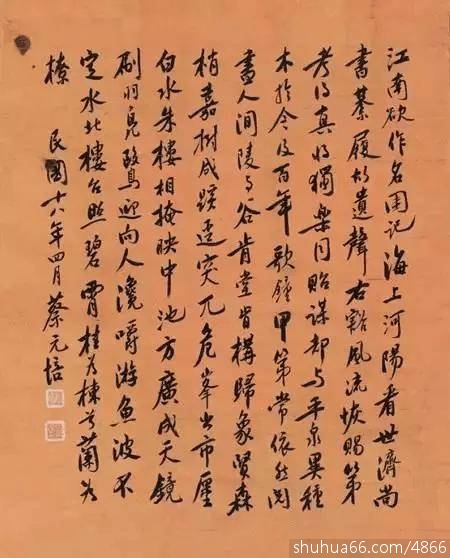 江南欲作名園記海上河陽看世濟尚
書綦履故遺聲右谿風流恢賜第
考得真將獨樂同貽謀却與平泉異種
木於今及百年歌鐘甲第常依然閱
盡人間陵與谷肯堂肯構歸象賢森
梢嘉樹成蹊徑突兀危峯出市廛
白水朱樓相掩映中池方廣成天鏡
刷羽鳧鷖迎向人瀺嚼游魚波不
定水北樓台照碧霄桂為棟兮蘭為
橑 民國十八年四月蔡元培
shuhua66.com/4866